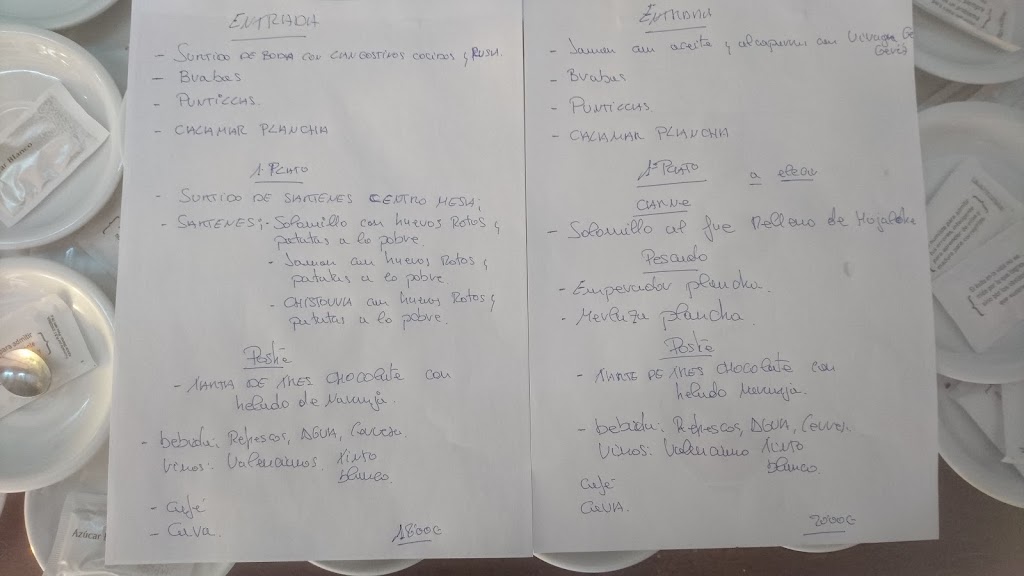 ENTRADA
- SURTIDO DE BODA con LANGOSTINOS COCIDOS y RUSA.
- Brabas
- PUNTILLAS.
- CALAMAR PLANCHA
1º PLATO
- SURTIDO DE SARTENES CENTRO MESA;
- SARTENES; - Solomillo con huevos Rotos y
patatas a lo pobre.
- Jamon con huevos Rotos y
patatas a lo pobre
- CHISTORRA con huevos Rotos y
patatas a lo pobre.
Postre
- TARTA DE TRES CHOCOLATE con
helado de Naranja.
- bebida: Refrescos, AGUA, Cerveza.
Vinos: Valencianos. tinto
blanco.
- Café
- Cava.
18'00€
ENTRADA
- Jamon con aceite y alcaparras con
- Brabas
- PUNTILLAS.
- CALAMAR PLANCHA
1º PLATO a elegir
CARNE
- Solomillo al fue Relleno de Hojaldre
Pescado
- Emperador plancha.
- Merluza plancha.
Postre
- TARTA DE TRES CHOCOLATE con
helado Naranja.
- bebida: Refrescos, AGUA, Cerveza.
Vinos: Valenciano tinto
blanco.
Café
CAVA.
20'00€
Azúcar
Blanco